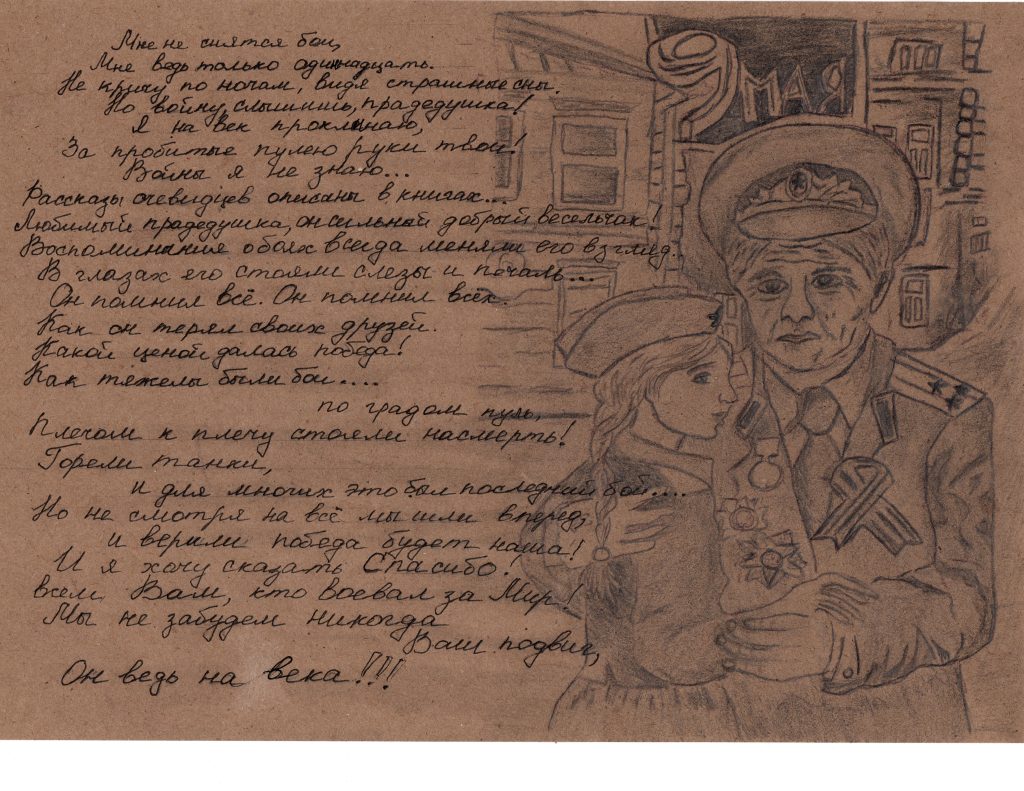 Мне не снятся бои,
Мне ведь только одиннадцать.
Не кричу по ночам, видя страшные сны.
Но войну, слышишь, прадедушка!
Я на век проклинаю,
За пробитые пулею руки твои!
Войны я не знаю...
Рассказы очевидцев описаны в книгах...
Любимый прадедушка, он сильный добрый весельчак!
Воспоминания о боях всегда меняли его взгляд..
В глазах его стояли слезы и печаль...
Он помнил всё. Он помнил всех.
Как он терял своих друзей.
Какой ценой далась победа!
Как тяжелы были бои....
по градом пуль,
Плечом к плечу стояли насмерть!
Горели танки,
и для многих это был последний бой....
Но не смотря на всё мы шли вперед,
и верили победа будет наша!
И я хочу сказать Спасибо!
всем Вам, кто воевал за Мир!
Мы не забудем никогда
Ваш подвиг,
Он ведь на века!!!
9 МАЯ